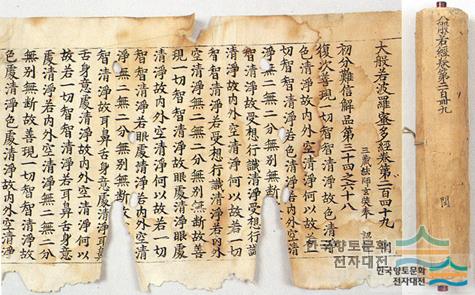 大般若經卷第二百卌九
大般若波羅蜜多經卷第二百四十九
初分難信解品第三十四之六十八
三藏法師玄奘奉 詔譯
復次善現一切智智清淨故色清淨
色清淨故內外空清淨何以故若一
切智智清淨若色清淨若內外空
清淨無二無二分無別無斷故一切智
智清淨故受想行識清淨受想行識
清淨故內外空清淨何以故若一切智
智清淨若受想行識清淨若內外
空清淨無二無二分無別無斷故善
現一切智智清淨故眼處清淨眼處
清淨故內外空清淨何以故若一切
智智清淨若眼處清淨若內外空清
淨無二無二分無別無斷故一切智
智清淨故耳鼻舌身意處清淨耳鼻
舌身意處清淨故內外空清淨何以
故若一切智智清淨若耳鼻舌身意
處清淨若內外空清淨無二無二分
無別無斷故善現一切智智清淨故
色處清淨色處清淨故內外空清淨
한국향토문화
전자대전
한국향토문화
전자대전